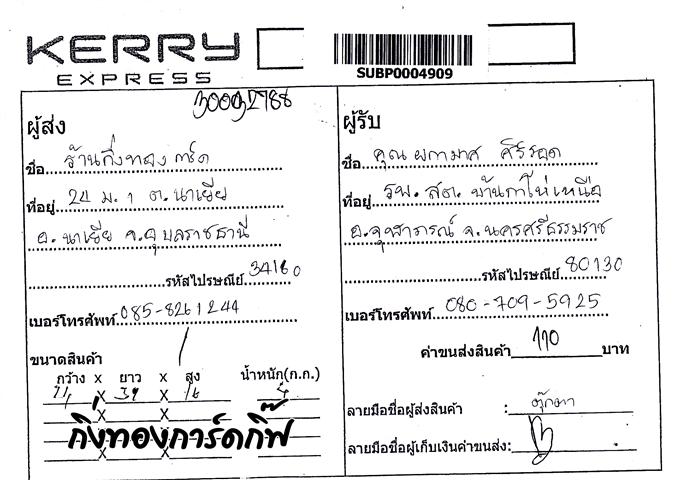 KERRY
EXPRESS
SUBP0004909
30002788
ผู้ส่ง
ชื่อ ร้านกิ่งทองการ์ด
ที่อยู่ 24 ม.1 ต.นาเยีย
อ.นาเยีย จ.อุบลราชธานี
รหัสไปรษณีย์ 34160
เบอร์โทรศัพท์ 085-8261244
ขนาดสินค้า
กว้าง x ยาว x สูง น้ำหนัก(ก.ก.)
x 39 x 16 4
x x
x x
x x
กิ่งทองการ์ดกิ๊ฟ
ผู้รับ
ชื่อ คุณ ผกามาศ ศิริรอด
ที่อยู่ รพ.สต. บ้านกาโห่เหนือ
อ.จุฬาภรณ์ จ.นครศรีธรรมราช
รหัสไปรษณีย์ 80130
เบอร์โทรศัพท์ 080-709-5925
ค่าขนส่งสินค้า 110 บาท
ลายมือชื่อผู้ส่งสินค้า : ตุ๊กตา
ลายมือชื่อผู้เก็บเงินค่าขนส่ง: